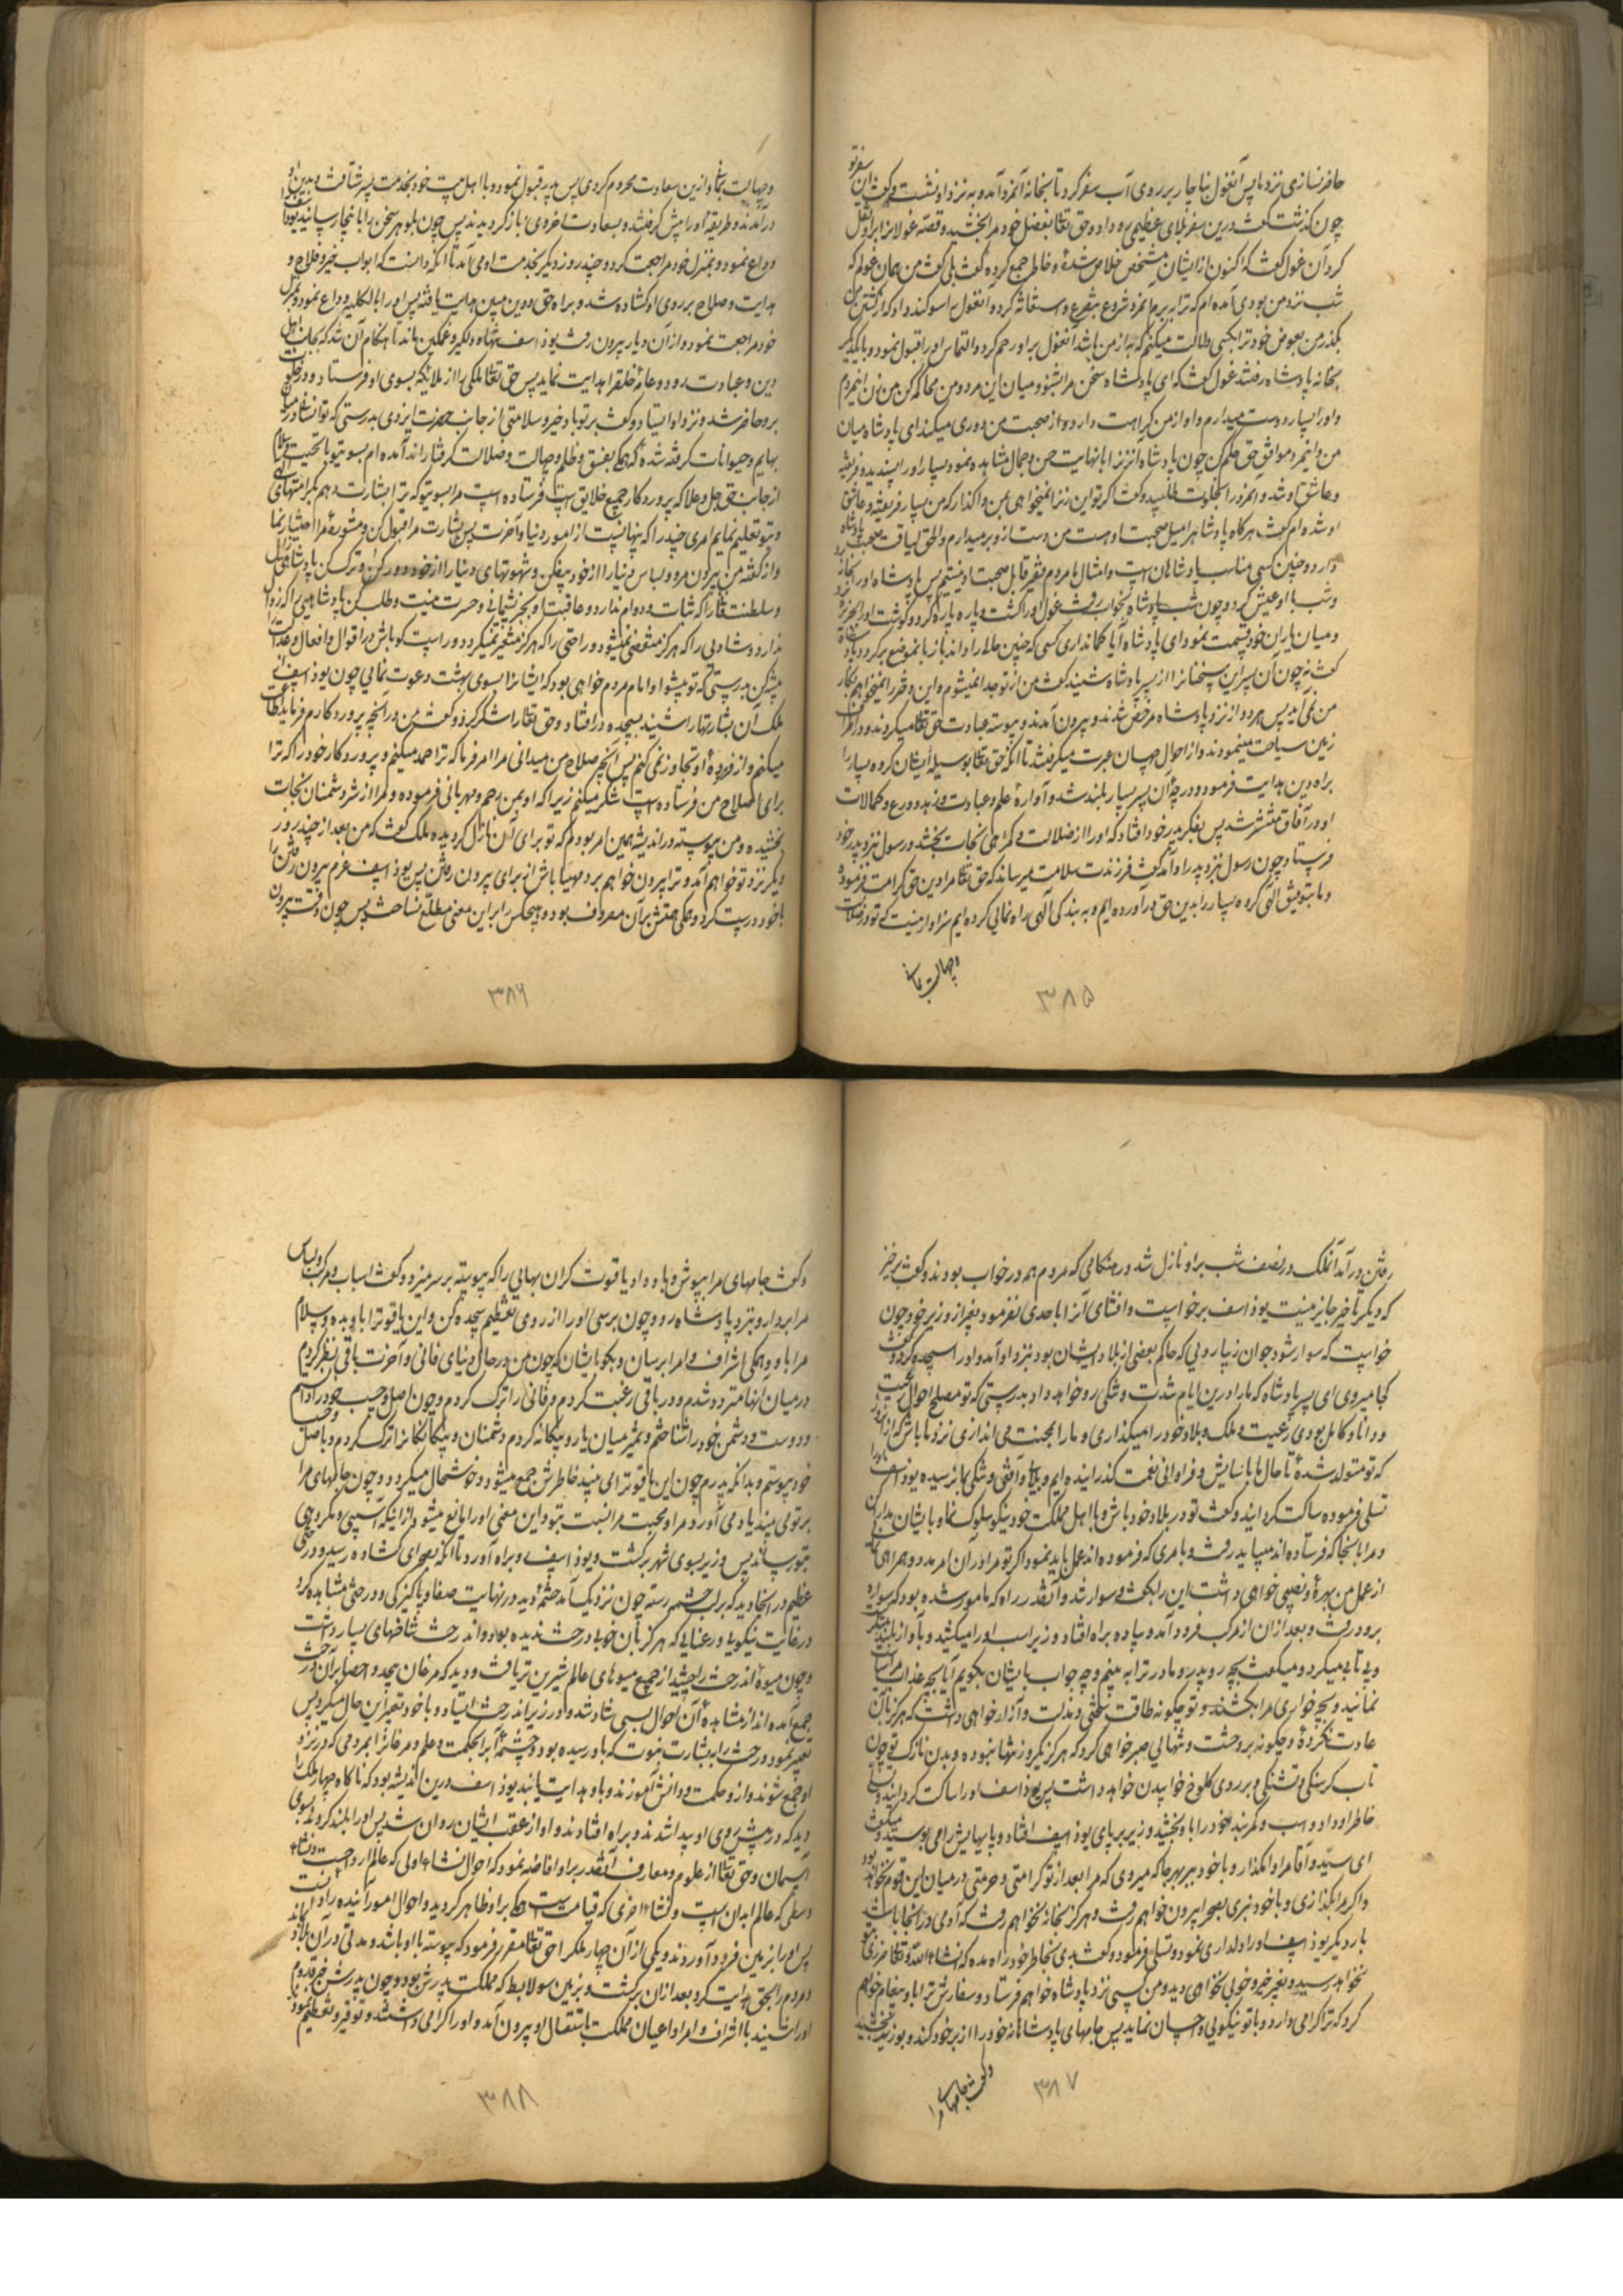 حاضر نسازی نزد ما پس آنغول بناچار بر روی آب سفر کرد تا بخانه آنمرد آمد و به نزد او نشست و گفت این سفر تو
چون گذشت گفت درین سفر بلای عظیمی رو داد و حق تعالی بفضل خود مرا بخشید و قصه غولانرا برا و نقل
کرد آن غول گفت که اکنون از ایشان مشخص خلاص شدهٔ و خاطر جمع کردهٔ گفت بلی گفت من همان غولم که
شب نزد من بودی آمده ام که ترا ببرم آنمرد شروع بتضرع و استغاثه کرد و آنغول را سوگند داد که از کشتن من
بگذر من بعوض خود ترا بکسی دلالت میکنم که به از من باشد آنغول بر او رحم کرد و التماس او را قبول نمود و با یکدیگر
بخانه پادشاه رفتند غول گفت که ای پادشاه سخن مرا بشنو و میان این مرد و من محاکمه کن من زن اینمردم
و او را بسیار دوست میدارم و او از من کراهت دارد و از صحبت من دوری میکند ای پادشاه میان
من و اینمرد موافق حق حکم کن چون پادشاه آنزنرا با نهایت حسن و جمال مشاهده نمود بسیار او را پسندید و فریفته
و عاشق او شد و آنمرد را بخلوت طلبید و گفت اگر تو این زنرا نمیخواهی بمن واگذار که من بسیار فریفته و عاشق
او شده ام گفت هرگاه پادشاه را میل صحبت او هست من دست از او بر میدارم و الحق لیاقت صحبت پادشاه
دارد و چنین کسی مناسب پادشاهان است و امثال ما مردم فقیر قابل صحبت او نیستیم پس پادشاه او را بخانه برد
و شب با او عیش کرد و چون شب پادشاه بخواب رفت غول او را کشت و پاره پاره کرد و گوشت او را بجزیره برد
و میان یاران خود قسمت نمود ای پادشاه آیا گمانداری کسی که چنین حالی را داند باز بآنموضع برگردد پادشاه
گفت نه چون آن پسر این سخنانرا از پسر پادشاه شنید گفت من از تو جدا نمیشوم و این دختر را نمیخواهم بکار
من نمی آید پس هر دو از نزد پادشاه مرخص شدند و بیرون آمدند و پیوسته عبادت حق تعالی میکردند و در اطراف
زمین سیاحت مینمودند و از احوال جهان عبرت میگرفتند تا آنکه حق تعالی بوسیله ایشان گروه بسیار را
براه دین هدایت فرمود و درجه آن پسر بسیار بلند شد و آوازهٔ علم و عبادت و زهد و ورع و کمالات
او در آفاق منتشر شد پس بفکر پدر خود افتاد که او را از ضلالت و گمراهی نجات بخشد و رسولی نزد پدر خود
فرستاد چون رسول نزد پدر او آمد گفت فرزندت سلامت میرساند که حق تعالی مرا دین حق کرامت فرموده
و ما بتوفیق الهی گروه بسیار را بدین حق در آورده ایم و به بندگی الهی راه نمائی کرده ایم سزاوار نیست که تو در ضلالت
و جهالت بمانی
۳۸۵
و جهالت بمانی و ازین سعادت محروم گردی پس پدر قبول نمود و با اهل بیت خود بخدمت پسر شتافت و بدین او
درآمدند و طریقه او را پیش گرفتند و بسعادت اخروی فایز گردیدند پس چون بلوهر سخن را باینجا رسانید یوذاسف را
وداع نمود و بمنزل خود مراجعت کرد و چند روز دیگر بخدمت او می آمد تا آنکه دانست که ابواب خیر و فلاح و
هدایت و صلاح بر روی او گشاده شد و براه حق و دین مبین هدایت یافته پس او را بالکلیه وداع نمود و بمنزل
خود مراجعت نمود و از آن دیار بیرون رفت و یوذاسف تنها و دلگیر و غمگین ماند تا هنگام آن شد که بجانب اهل
دین و عبادت رود و عامهٔ خلق را هدایت نماید پس حق تعالی ملکی را از ملائکه بسوی او فرستاد و در خلوت
برو حاضر شد و نزد او ایستاد و گفت بر تو باد خیر و سلامتی از جانب حضرت ایزدی بدرستی که تو انسانی در میان
بهایم و حیوانات گرفته شدهٔ که همگی بفسق و ظلم و جهالت و ضلالت گرفتار اند آمده ام بسوی تو با تحیت و سلام
از جانب حق جل و علا که پروردگار جمیع خلایق است فرستاده است مرا بسوی تو که ترا بشارت دهم بکرامتهای الهی
و بتو تعلیم نمایم امری چند را که پنهانست از امور دنیا و آخرت پس بشارت مرا قبول کن و مشورهٔ مرا اختیار نما
و از گفته من بیرون مرو و لباس دنیا را از خود بیفکن و شهوتهای دنیا را از خود دور کن و ترک کن پادشاهی زایل
و سلطنت فانی را که ثبات و دوام ندارد و عاقبت او بجز پشیمانی و حسرت نیست و طلب کن پادشاهیی را که زوال
ندارد و شادیی را که هرگز منقضی نمیشود و راحتی را که هرگز متغیر نمیگردد و راست گو باش در اقوال و افعال و عدالت
پیشه کن بدرستی که تو پیشوا و امام مردم خواهی بود که ایشانرا بسوی بهشت دعوت نمائی چون یوذاسف از
ملک آن بشارتها را شنید بسجده در افتاد و حق تعالی را شکر کرد و گفت من در آنچه پروردگارم فرماید اطاعت
میکنم و از فرمودهٔ او تجاوز نمی کنم پس آنچه صلاح من میدانی مرا امر فرما که ترا حمد میکنم و پروردگار خود را که ترا
برای اصلاح من فرستاده است شکر میکنم زیرا که او بمن رحم و مهربانی فرموده و مرا از شر دشمنان نجات
بخشیده و من پیوسته در اندیشه همین امر بودم که تو برای آن نازل گردیده ملک گفت که من بعد از چند روز
دیگر نزد تو خواهم آمد و ترا بیرون خواهم برد مهیا باش از برای بیرون رفتن پس یوذاسف عزم بیرون رفتن را
با خود درست کرد و همگی همتش بر آن مصروف بود و هیچکس را بر این معنی مطلع نساخت پس چون وقت بیرون
۳۸۶
رفتن در آمد آنملک در نصف شب برا و نازل شد در هنگامی که مردم همه در خواب بودند و گفت برخیز
که دیگر تأخیر جایز نیست یوذاسف برخواست و افشای آنرا باحدی نفرمود بغیر از وزیر خود چون
خواست که سوار شود جوان زیبا رویی که حاکم بعضی از بلاد ایشان بود نزد او آمد و او را سجده کرد و گفت
کجا میروی ای پسر پادشاه که ما را درین ایام شدت و تنگی رو خواهد داد بدرستی که تو مصلح احوال رعیت
و دانا و کامل بودی رعیت و ملک و بلاد خود را میگذاری و ما را بمحنت می اندازی نزد ما باش از آنروز
که تو متولد شدهٔ تا حال ما باسایش و فراوانی نعمت گذرانیده ایم و بلا و آفتی و تنگی بما نرسیده یوذاسف او را
تسلی فرموده ساکت گردانید و گفت تو در بلاد خود باش و با اهل مملکت خود نیکو سلوک نما و با ایشان مدارا کن
و مرا بآنجا که فرستاده اند میباید رفت و بامری که فرموده اند عمل باید نمود اگر تو مرا در آن امر مدد و همراهی نمائی
از عمل من بهرهٔ و نصیبی خواهی داشت این را گفت و سوار شد و آنقدر راه که مامور شده بود که سواره
برود رفت و بعد از آن از مرکب فرود آمد و پیاده براه افتاد و وزیر اسب او را میکشید و بآواز بلند میگریست
و بی تابی میکرد و میگفت بچه رو پدر و مادر ترا به بینم و چه جواب بایشان بگویم آیا بچه عذاب مرا سیاست
نمایند و بچه خواری مرا بکشند و تو چگونه طاقت سختی و مذلت و آزار خواهی داشت که هرگز بآن
عادت نکردهٔ و چگونه بر وحشت و تنهایی صبر خواهی کرد که هرگز یکروز تنها نبودهٔ و بدن نازک تو چون
تاب گرسنگی و تشنگی و بر روی کلوخ خوابیدن خواهد داشت پس یوذاسف او را ساکت گردانید و تسلی
خاطر او داد و اسب و کمربند خود را باو بخشید و وزیر بر پای یوذاسف افتاد و پایهایش را می بوسید و میگفت
ای سید و آقا مرا وا مگذار و با خود ببر بهر جا که میروی که مرا بعد از تو کرامتی و حرمتی در میان این قوم نخواهد بود
و اگر مرا بگذاری و با خود نبری بصحرا بیرون خواهم رفت و هرگز بخانهٔ نخواهم رفت که آدمی در آنجا باشد
بار دیگر یوذاسف او را دلداری نمود و تسلی فرمود و گفت بدی بخاطر خود راه مده که انشاء الله تعالی ضرری بتو
نخواهد رسید و بغیر خیر و خوبی نخواهی دید و من کسی نزد پادشاه خواهم فرستاد و سفارش ترا باو پیغام خواهم
کرد که ترا گرامی دارد و با تو نیکویی و احسان نماید پس جامهای پادشاهانه خود را از بر خود کند و بوزیر بخشید
و گفت جامهای مرا
۳۸۷
و گفت جامهای مرا بپوش و باو داد یاقوت گران بهایی را که پیوسته بر سر میزد و گفت اسباب و مرکب و لباس
مرا بردار و بنزد پادشاه رو و چون برسی او را از روی تعظیم سجده کن و این یاقوت را باو بده و سلام
مرا باو و همگی اشراف و امرا برسان و بگو بایشان که چون من در حال دنیای فانی و آخرت باقی نظر کردم
در میان آنها متردد شدم و در باقی رغبت کردم و فانی را ترک کردم و چون اصل و حسب خود را دانستم
و دوست و دشمن خود را شناختم و تمیز میان یار و بیگانه کردم دشمنان و بیگانگانرا ترک کردم و باصل و حسب
خود پیوستم و بدانکه پدرم چون این یاقوت را می بیند خاطرش جمع میشود و خوشحال میگردد و چون جامهای مرا
بر تو می بیند یاد می آورد مرا و محبت مرا نسبت بتو و این معنی او را مانع میشود از اینکه آسیبی و مکروهی
بتو رساند پس وزیر بسوی شهر برگشت و یوذاسف رو براه آورد تا آنکه بصحرای گشاده رسید و درختی
عظیم در آنجا دید که بر لب چشمه رسته چون نزدیک آمد چشمهٔ دید در نهایت صفا و پاکیزگی و درختی مشاهده کرد
در غایت نیکویی و رعنایی که هرگز بآن خوبی درخت ندیده بود و اندرخت شاخهای بسیار داشت
و چون میوهٔ اندرخت را چشید از جمیع میوهای عالم شیرین تر یافت و دید که مرغان بیحد و احصا بر آن درخت
جمع آمده اند از مشاهدهٔ آن احوال بسی شاد شد و او در زیر اندرخت ایستاد و با خود تعبیر این حال میکرد پس
تعبیر نمود درخت را به بشارت نبوت که باو رسیده بود و چشمهٔ آبرا بحکمت و علم و مرغانرا بمردمی که در نزد
او جمع شوند و از و حکمت و دانش آموزند و باو هدایت یابند یوذاسف درین اندیشه بود که ناگاه چهار ملک را
دید که در پیش روی او پیدا شدند و براه افتادند و او از عقب ایشان روان شد پس او را بلند کردند بسوی
آسمان و حق تعالی از علوم و معارف آنقدر بر او افاضه نمود که احوال نشاه اولی که عالم ارواحست و نشاه
وسطی که عالم ابدان است و نشاه اخری که قیامت است همگی بر او ظاهر گردید و احوال امور آینده را دانست
پس او را بزمین فرود آوردند و یکی از آن چهار ملک را حق تعالی مقرر فرمود که پیوسته با او باشد و مدتی در آن بلاد ماند
و مردم را بحق هدایت کرد بعد از آن برگشت و بزمین سولابط که مملکت پدرش بود و چون پدرش خبر قدوم
او را شنید با اشراف و امرا و اعیان مملکت باستقبال او بیرون آمد و او را گرامی داشتند و توقیر و تعظیم نمودند
۳۸۸